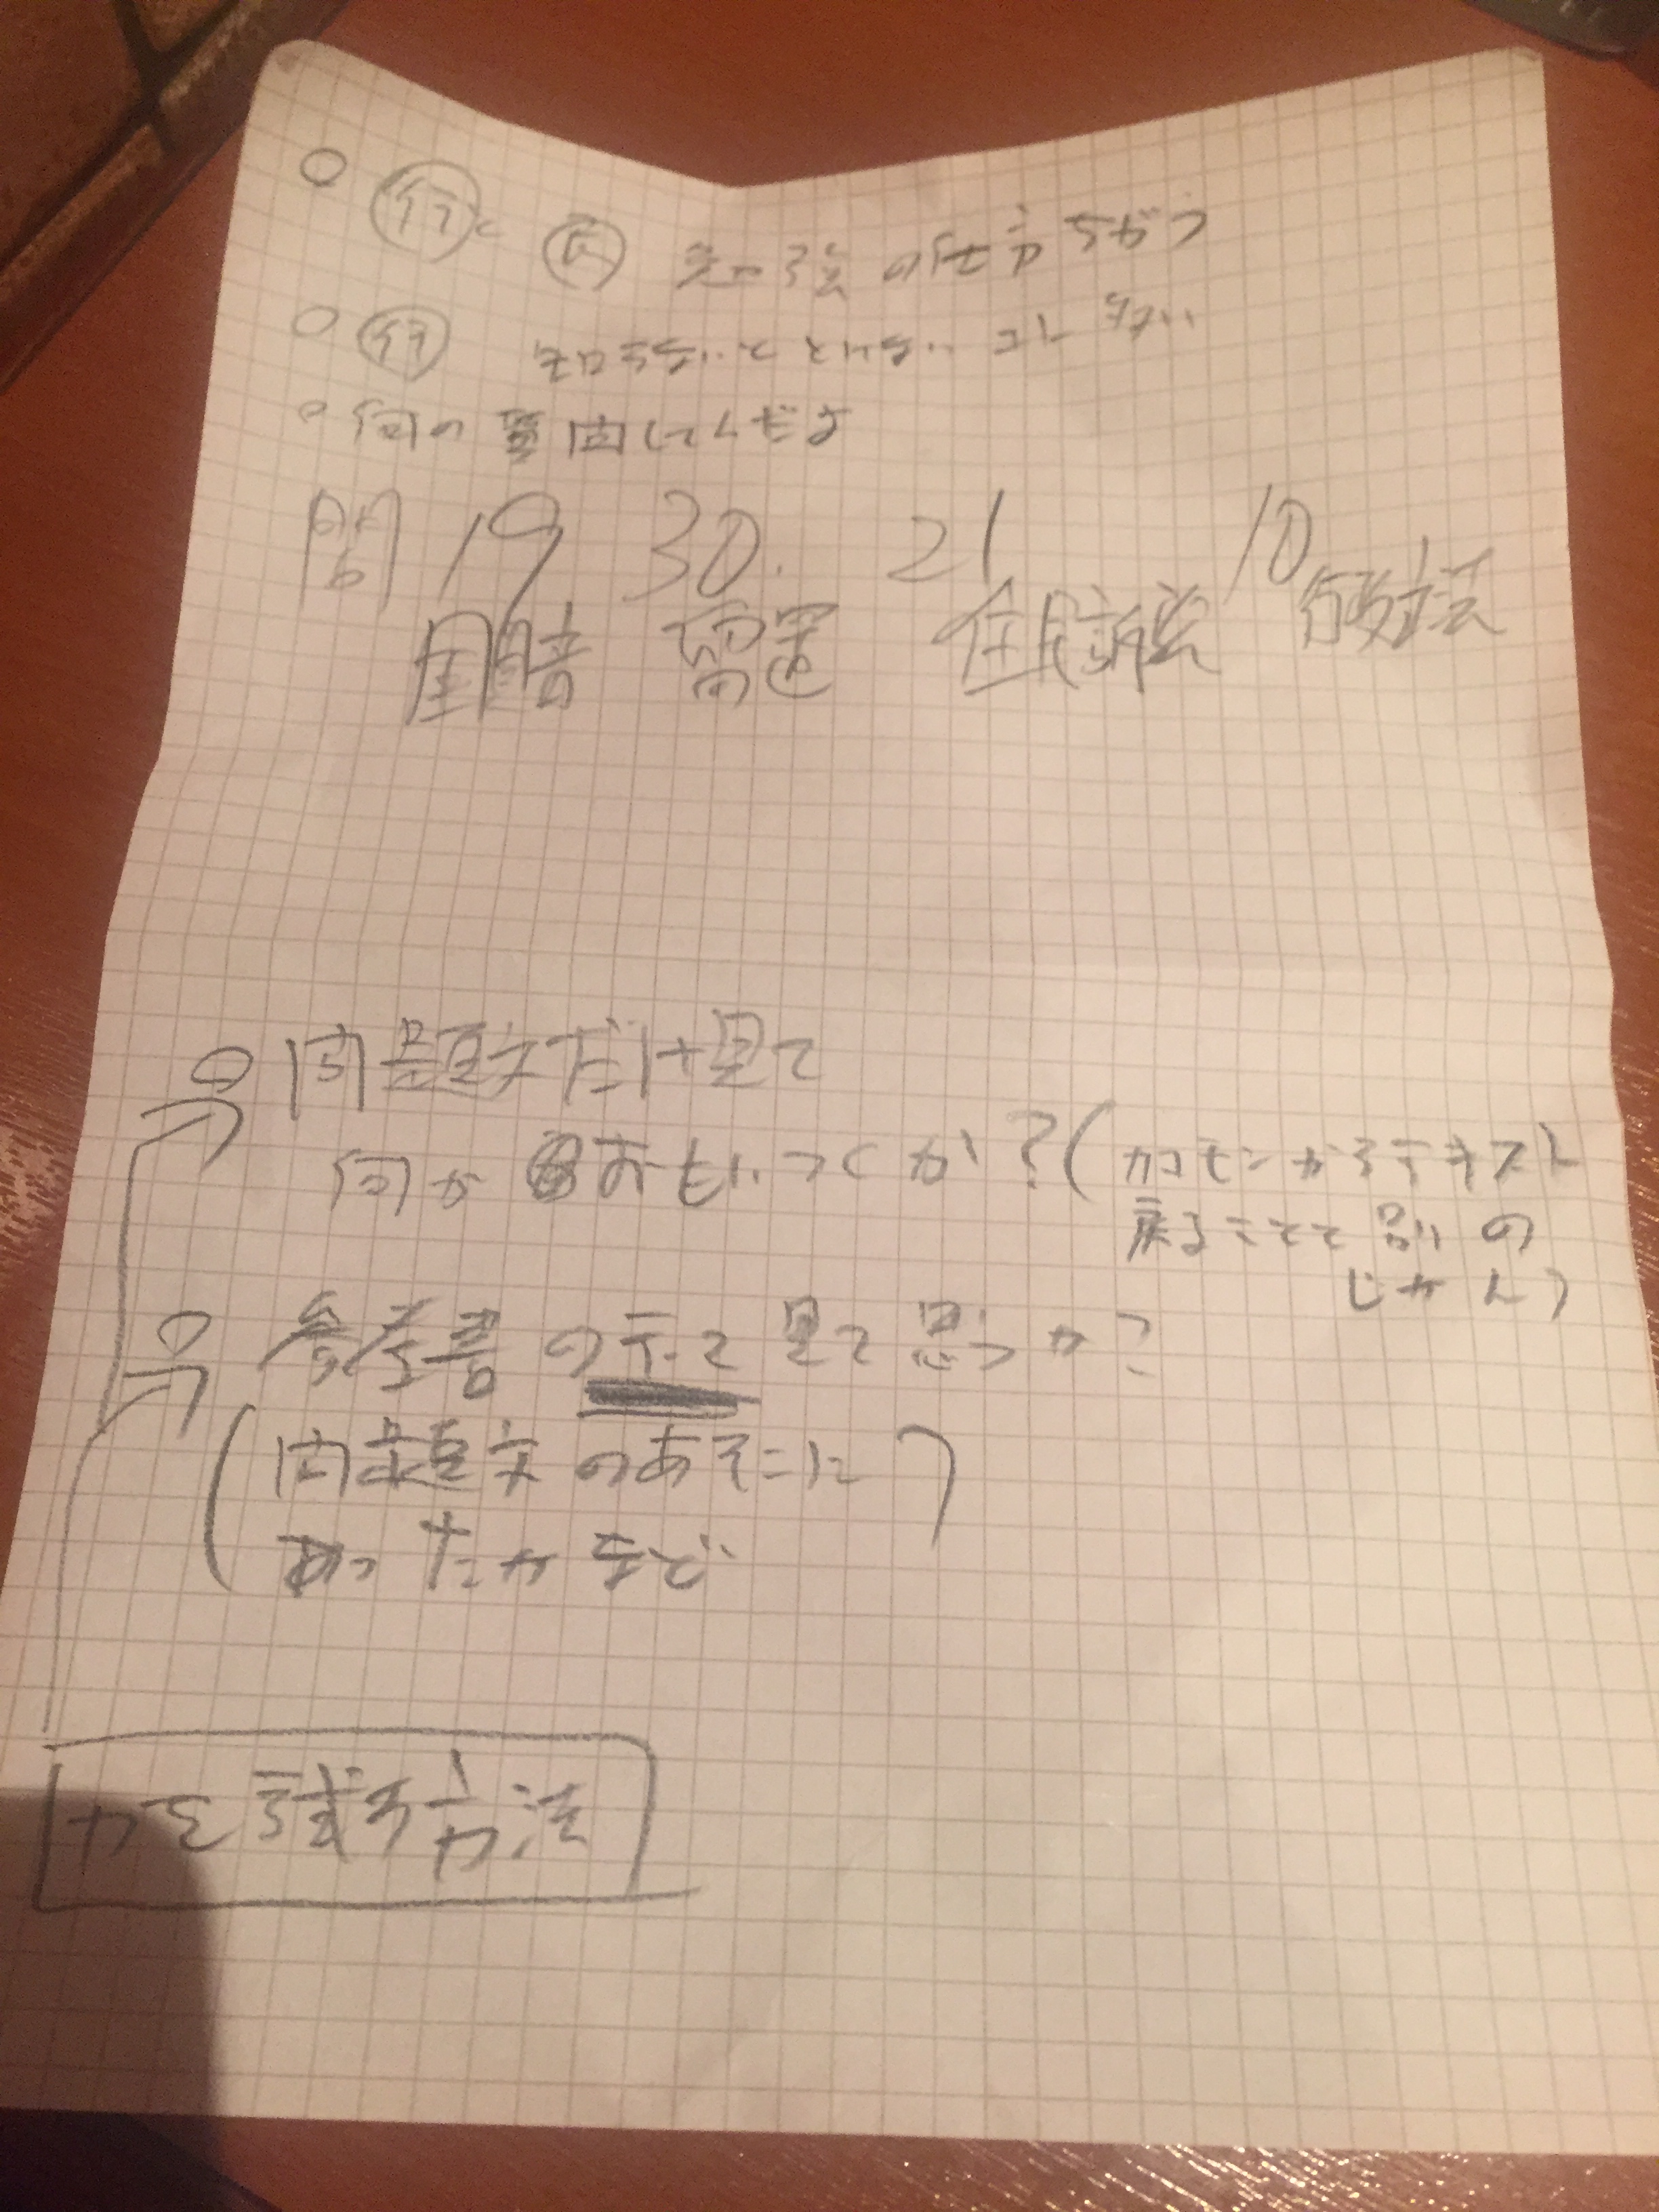 ○ 行と民 勉強の仕方ちがう
○ 行 知らないと といえないコト 多い
○ 何の質問してんだよ
問 19 30. 21 10
留置 住民訴訟
○ 問題文だけ見て
何がおもいつくか？（カコモンからテキスト
戻るここて 別の
じかん）
○ 参考書の テーマ 見て思うか？
（問題文のあそこに
あったかなど）
力を試す方法